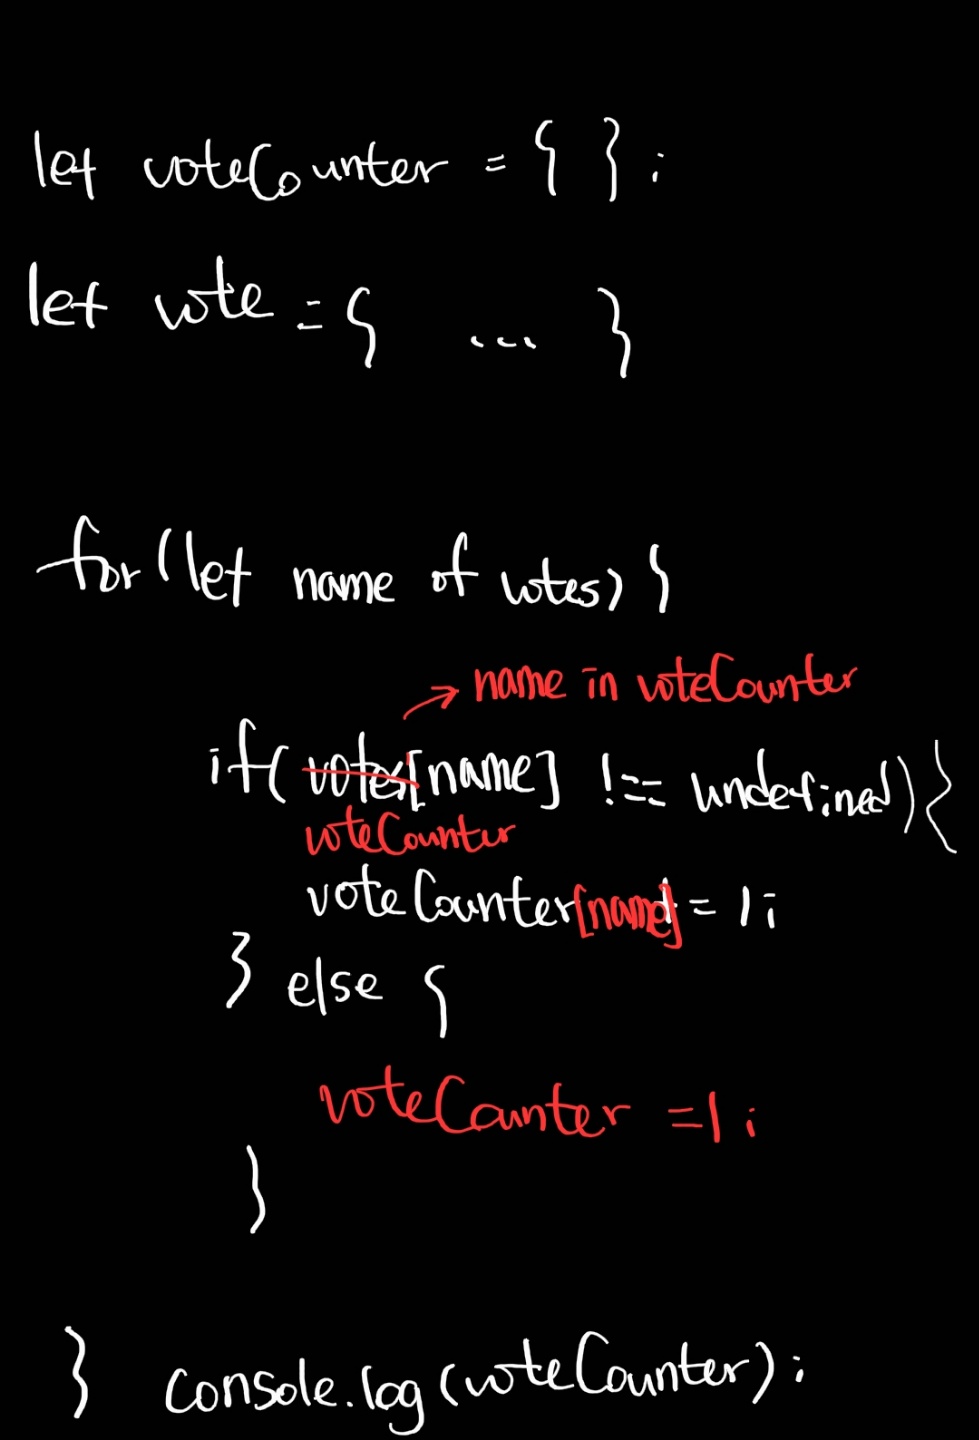 let voteCounter = { };
let vote = { ... }
for (let name of votes) }
→ name in voteCounter
if( votes[name] !== undefined) {
voteCounter
voteCounter[name] = 1;
} else {
voteCounter = 1;
}
} console.log(voteCounter);